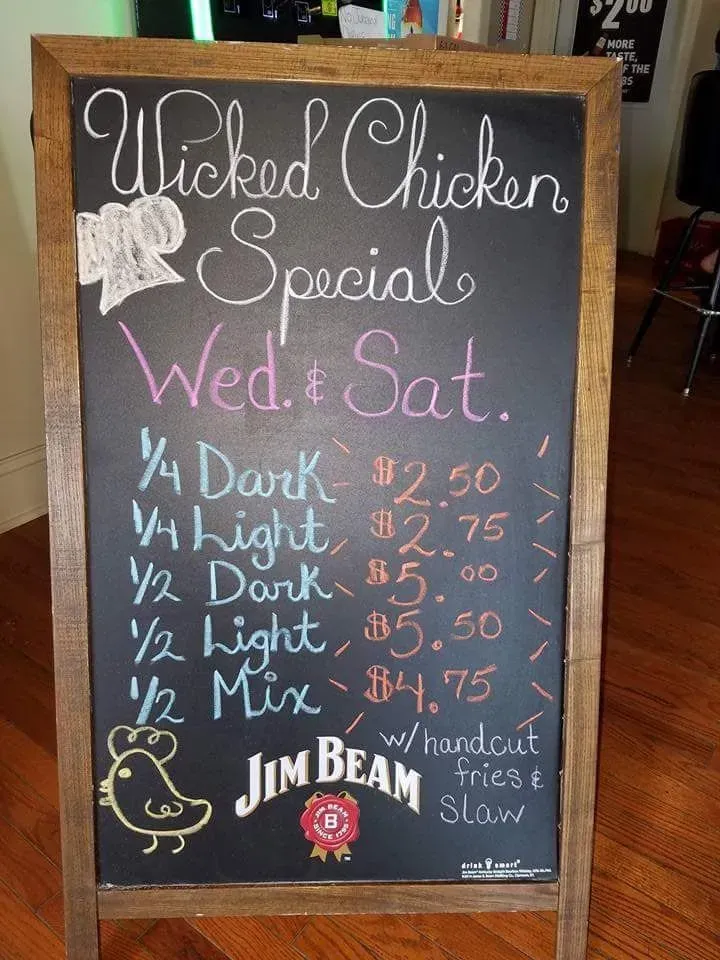 $2.00
MORE
TASTE,
F THE
Wicked Chicken
Special
Wed. & Sat.
1/4 Dark $2.50
1/4 Light $2.75
1/2 Dark $5.00
1/2 Light $5.50
1/2 Mix $4.75
w/handcut
fries &
slaw
JIM BEAM
JIM BEAM
B
SINCE 1795
drink smart